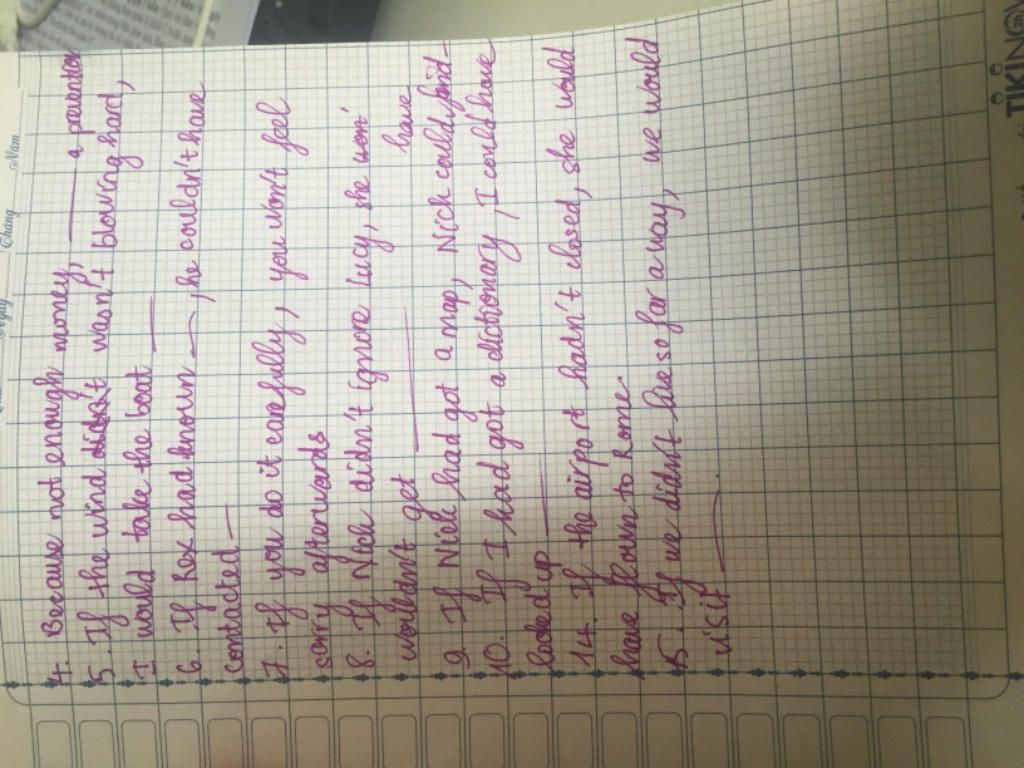 4. Because not enough money, —— a prevention
5. If the wind didn't wasn't blowing hard,
I would take the boat ——
6. If Rex had known ——, he couldn't have
contacted —
7. If you do it carefully, you won't feel
sorry afterwards
8. If Nick didn't ignore Lucy, she won'
wouldn't get —— have
9. If Nick had got a map, Nick could find —
10. If I had got a dictionary, I could have
looked up ——
14. If the airport hadn't closed, she would
have flown to Rome.
15. If we didn't live so far away, we would
visit ——.
Thang
Nam
TIKI